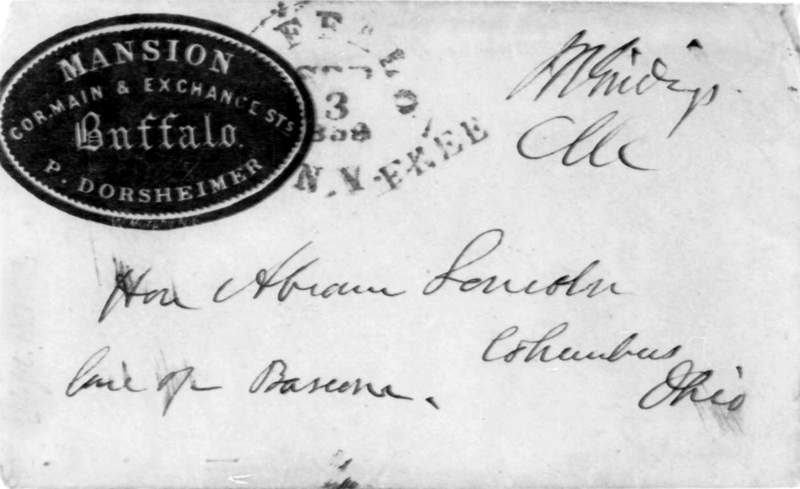 MANSION
COR. MAIN & EXCHANGE STS
Buffalo.
P. DORSHEIMER
FFALO
3
N.Y. FREE
Hon Abram Lincoln
Columbus
Ohio
Care of Bascom.